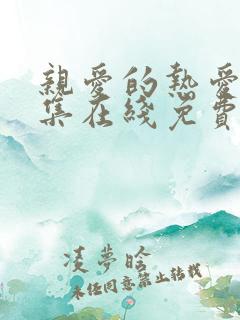 親愛的熱愛
集在綫免費
凌夢晗
未經同意禁止轉載